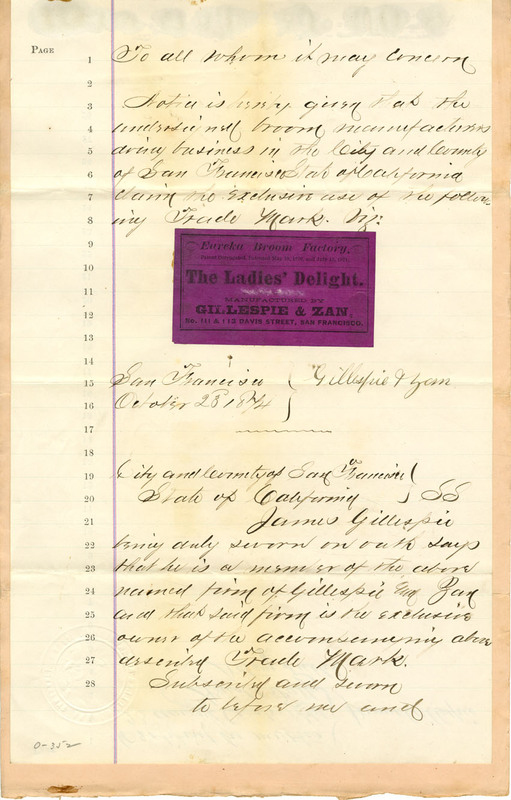 PAGE
1 To all whom it may Concern
2
3 Notice is hereby given that the
4 undersigned broom manufacturers
5 doing business in the City and County
6 of San Francisco State of California
7 claim the exclusive use of the follow-
8 ing Trade Mark. Viz:
Eureka Broom Factory.
The Ladies' Delight.
9
MANUFACTURED BY
10
GILLESPIE & ZAN,
11
No. 111 & 113 DAVIS STREET, SAN FRANCISCO.
12
13
14
15 San Francisco Gillespie & Zan
16 October 23d 1874
17
18
19 City and County of San Francisco
20 State of California SS
21 James Gillespie
22 being duly sworn on oath says
23 that he is a member of the above
24 named firm of Gillespie and Zan
25 and that said firm is the exclusive
26 owner of the accompanying above
27 described Trade Mark.
28 Subscribed and sworn
to before me and
0-352